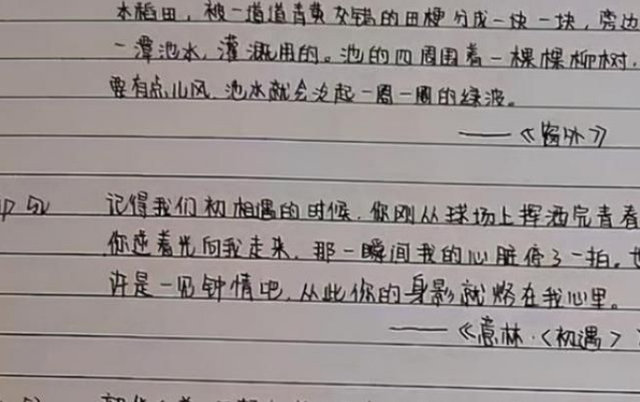 水稻田，被一道道青黄交错的田梗分成一块一块，旁边
一潭池水，灌溉用的。池的四周围着一棵棵柳树，
要有点儿风，池水就会泛起一圈一圈的绿波。
——《窗外》
P 52
记得我们初相遇的时候，你刚从球场上挥洒完青春
你逆着光向我走来，那一瞬间我的心脏停了一拍。也
许是一见钟情吧，从此你的身影就烙在我心里。
——《意林·<初遇>